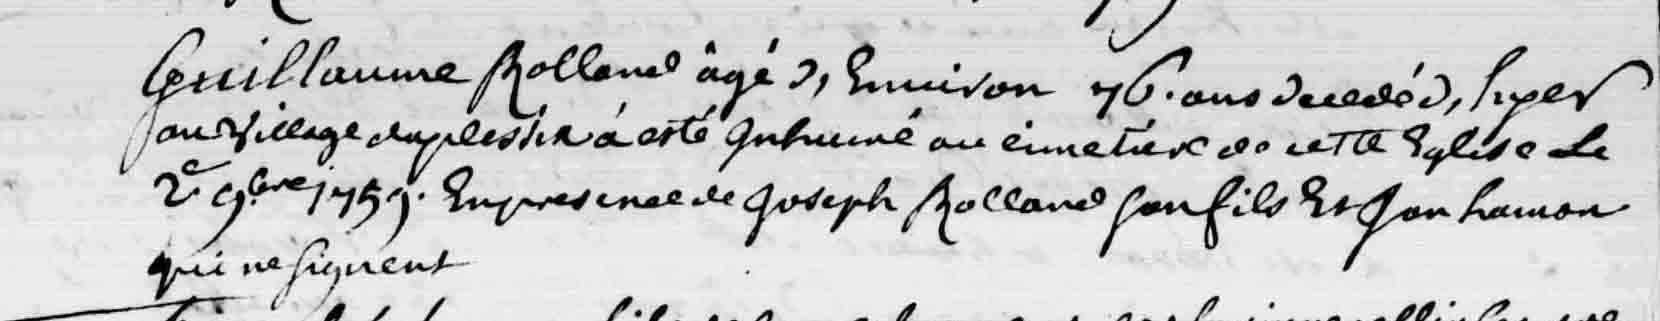 Guillaume Rolland âgé d, Environ 76. ans decedé d, hyer
au Village duplessix à esté Inhumé au cimetiere de cette Eglise Le
2e 9.bre 1759. En presence de Joseph Rolland son fils Et Jan hamon
qui ne signent